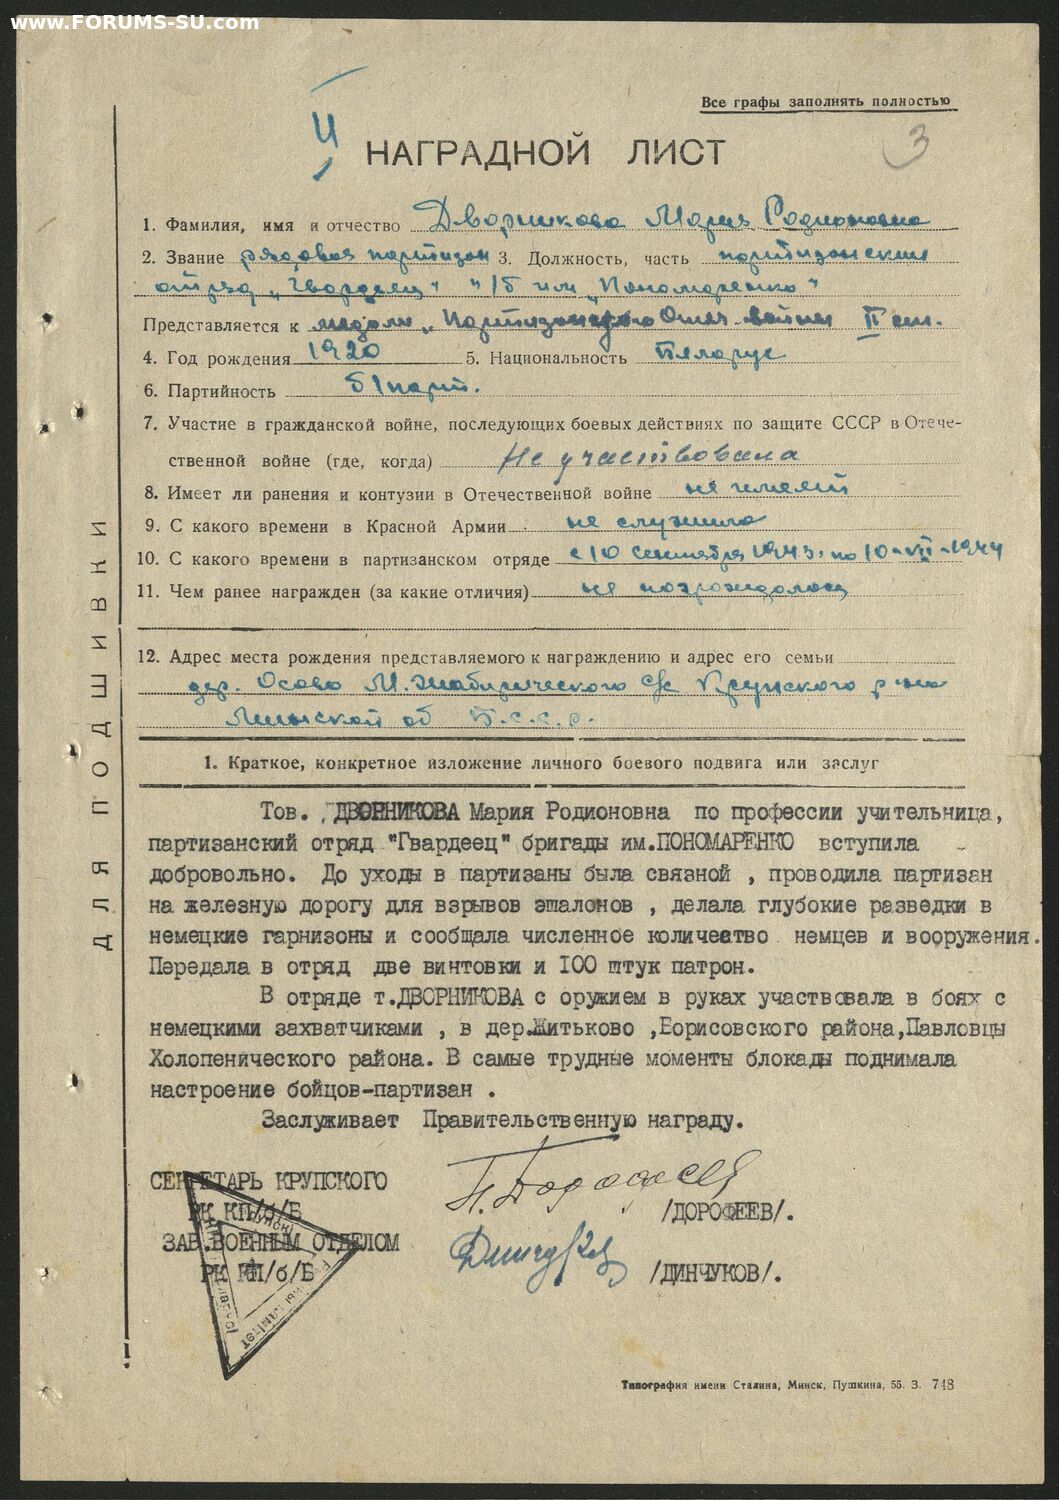 www.FORUMS-SU.com
Все графы заполнять полностью
II
НАГРАДНОЙ ЛИСТ
3
1. Фамилия, имя и отчество Дворникова Мария Родионовна
2. Звание рядовая партизан 3. Должность, часть партизанский
отряд „Гвардеец" п/б им „Пономаренко"
Представляется к медали „Партизану Отеч. войны II ст.
4. Год рождения 1920 5. Национальность Белорус
6. Партийность б/парт.
7. Участие в гражданской войне, последующих боевых действиях по защите СССР в Отече-
ственной войне (где, когда) Не участвовала
8. Имеет ли ранения и контузии в Отечественной войне не имеет
9. С какого времени в Красной Армии не служила
10. С какого времени в партизанском отряде с 10 сентября 1943. по 10-VII-1944
11. Чем ранее награжден (за какие отличия) не награждалась
12. Адрес места рождения представляемого к награждению и адрес его семьи
дер. Осово М. с/с Крупского р-на
Минской об Б.С.С.Р.
1. Краткое, конкретное изложение личного боевого подвига или заслуг
Тов. ДВОРНИКОВА Мария Родионовна по профессии учительница,
партизанский отряд "Гвардеец" бригады им.ПОНОМАРЕНКО вступила
добровольно. До уходы в партизаны была связной , проводила партизан
на железную дорогу для взрывов эшалонов , делала глубокие разведки в
немецкие гарнизоны и сообщала численное количество немцев и вооружения.
Передала в отряд две винтовки и 100 штук патрон.
В отряде т.ДВОРНИКОВА с оружием в руках участвовала в боях с
немецкими захватчиками , в дер.Житьково ,Борисовского района,Павловцы
Холопенического района. В самые трудные моменты блокады поднимала
настроение бойцов-партизан .
Заслуживает Правительственную награду.
СЕКРЕТАРЬ КРУПСКОГО
РК КП/б/Б /ДОРОФЕЕВ/.
ЗАВ.ВОЕННЫМ ОТДЕЛОМ
РК КП/б/Б /ДИНЧУКОВ/.
Типография имени Сталина, Минск, Пушкина, 55. З. 748
ДЛЯ ПОДШИВКИ